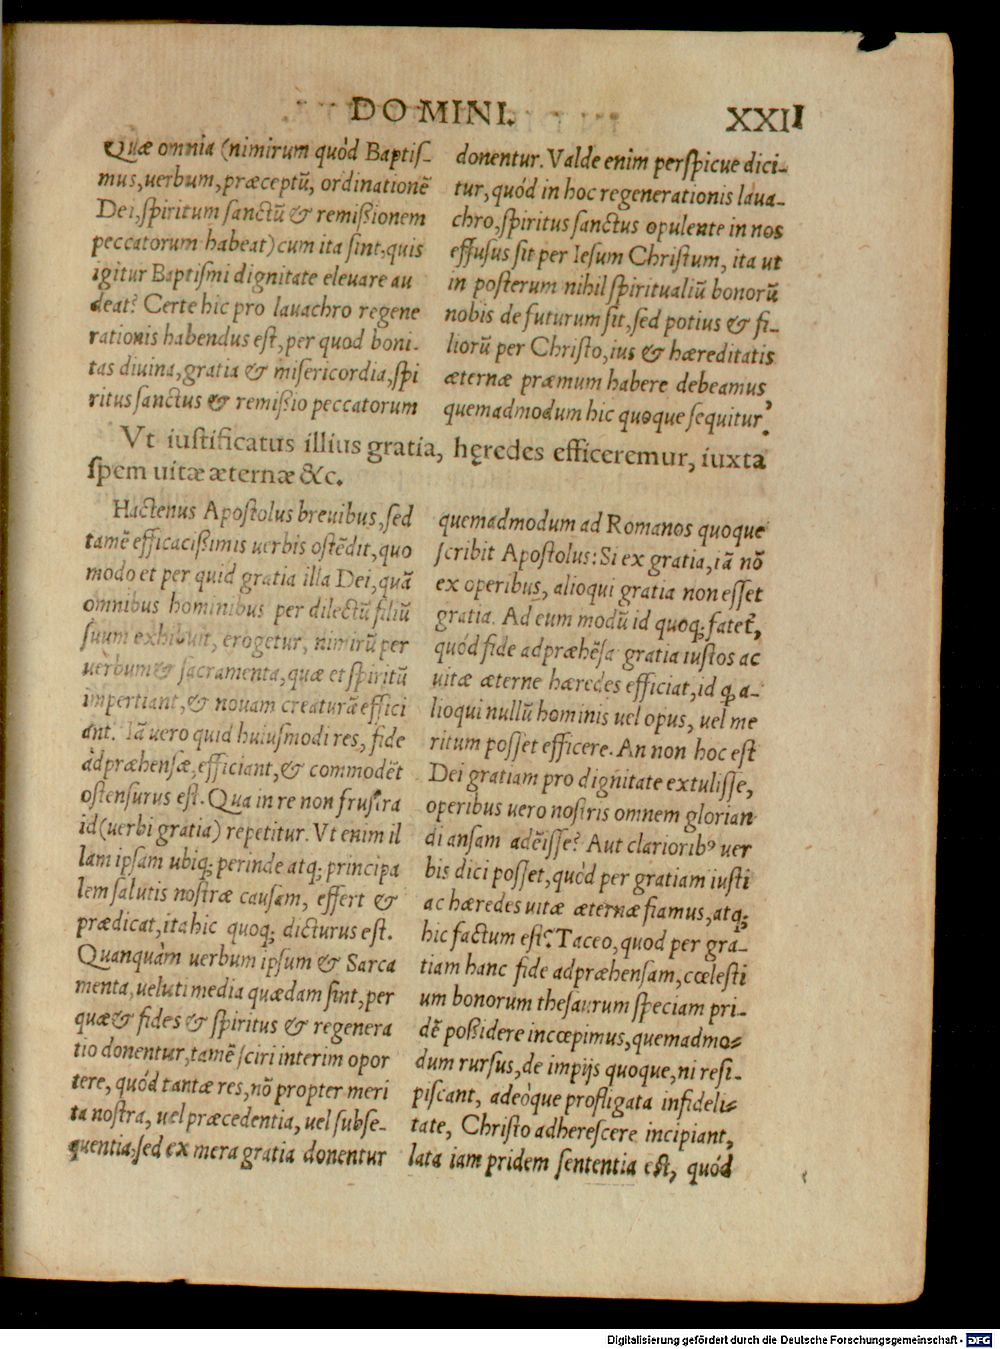 DOMINI.
XXII
Quæ omnia (nimirum quód Baptiſ-
mus, uerbum, præceptū, ordinationē
Dei, ſpiritum ſanctū & remißionem
peccatorum habeat) cum ita ſint, quis
igitur Baptiſmi dignitate eleuare au
deat? Certe hic pro lauachro regene
rationis habendus eſt, per quod boni-
tas diuina, gratia & miſericordia, ſpi
ritus ſanctus & remißio peccatorum
donentur. Valde enim perſpicue dici-
tur, quód in hoc regenerationis laua-
chro, ſpiritus ſanctus opulente in nos
effuſus ſit per Ieſum Chriſtum, ita ut
in poſterum nihil ſpiritualiū bonorū
nobis de futurum ſit, ſed potius & fi-
liorū per Chriſto, ius & hæreditatis
æternæ præmum habere debeamus
quemadmodum hic quoque ſequitur.
Vt iuſtificatus illius gratia, hęredes efficeremur, iuxta
ſpem uitæ æternæ &c.
Hactenus Apoſtolus breuibus, ſed
tamē efficacißimis uerbis oſtēdit, quo
modo et per quid gratia illa Dei, quā
omnibus hominibus per dilectū filiū
ſuum exhibuit, erogetur, nimirū per
uerbum & ſacramenta, quæ et ſpiritū
impertiant, & nouam creaturā effici
ant. Iā uero quid huiuſmodi res, fide
adpræhenſæ, efficiant, & commodēt
oſtenſurus eſt. Qua in re non fruſtra
id (uerbi gratia) repetitur. Vt enim il
lam ipſam ubiq; perinde atq; principa
lem ſalutis noſtræ cauſam, effert &
prædicat, ita hic quoq; dicturus eſt.
Quanquàm uerbum ipſum & Sarca
menta, ueluti media quædam ſint, per
quæ & fides & ſpiritus & regenera
tio donentur, tamē ſciri interim opor
tere, quód tantæ res, nō propter meri
ta noſtra, uel præcedentia, uel ſubſe-
quentia, ſed ex mera gratia donentur
quemadmodum ad Romanos quoque
ſcribit Apoſtolus: Si ex gratia, iā nō
ex operibus, alioqui gratia non eſſet
gratia. Ad eum modū id quoq; fatet,
quód fide adpræhēſa gratia iuſtos ac
uitæ æterne hæredes efficiat, id ꝗ a-
lioqui nullū hominis uel opus, uel me
ritum poſſet efficere. An non hoc eſt
Dei gratiam pro dignitate extuliſſe,
operibus uero noſtris omnem glorian
di anſam adēiſſe? Aut clarioribꝰ uer
bis dici poſſet, quòd per gratiam iuſti
ac hæredes uitæ æternæ fiamus, atq;
hic factum eſt? Taceo, quod per gra-
tiam hanc fide adpræhenſam, cœleſti
um bonorum theſaurum ſpeciam pri-
dē poßidere incœpimus, quemadmo-
dum rurſus, de impijs quoque, ni reſi-
piſcant, adeòque profligata infideli-
tate, Chriſto adhereſcere incipiant,
lata iam pridem ſententia eſt, quód
Digitalisierung gefördert durch die Deutsche Forschungsgemeinschaft - DFG